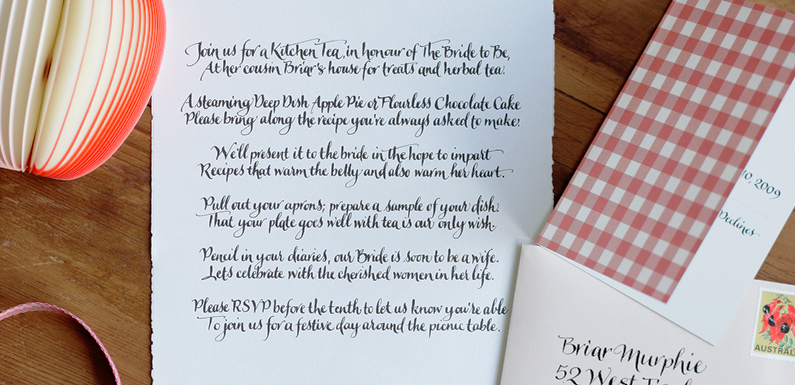 Join us for a Kitchen Tea, in honour of The Bride to Be,
At her cousin Briar's house for treats and herbal tea.
A steaming Deep Dish Apple Pie or Flourless Chocolate Cake
Please bring along the recipe you're always asked to make!
We'll present it to the bride in the hope to impart
Recipes that warm the belly and also warm her heart.
Pull out your aprons; prepare a sample of your dish.
That your plate goes well with tea is our only wish.
Pencil in your diaries, our Bride is soon to be a wife.
Let's celebrate with the cherished women in her life.
Please RSVP before the tenth to let us know you're able
To join us for a festive day around the picnic table.
10, 2009
Declines
Briar Murphie
52 West
AUSTRALIA